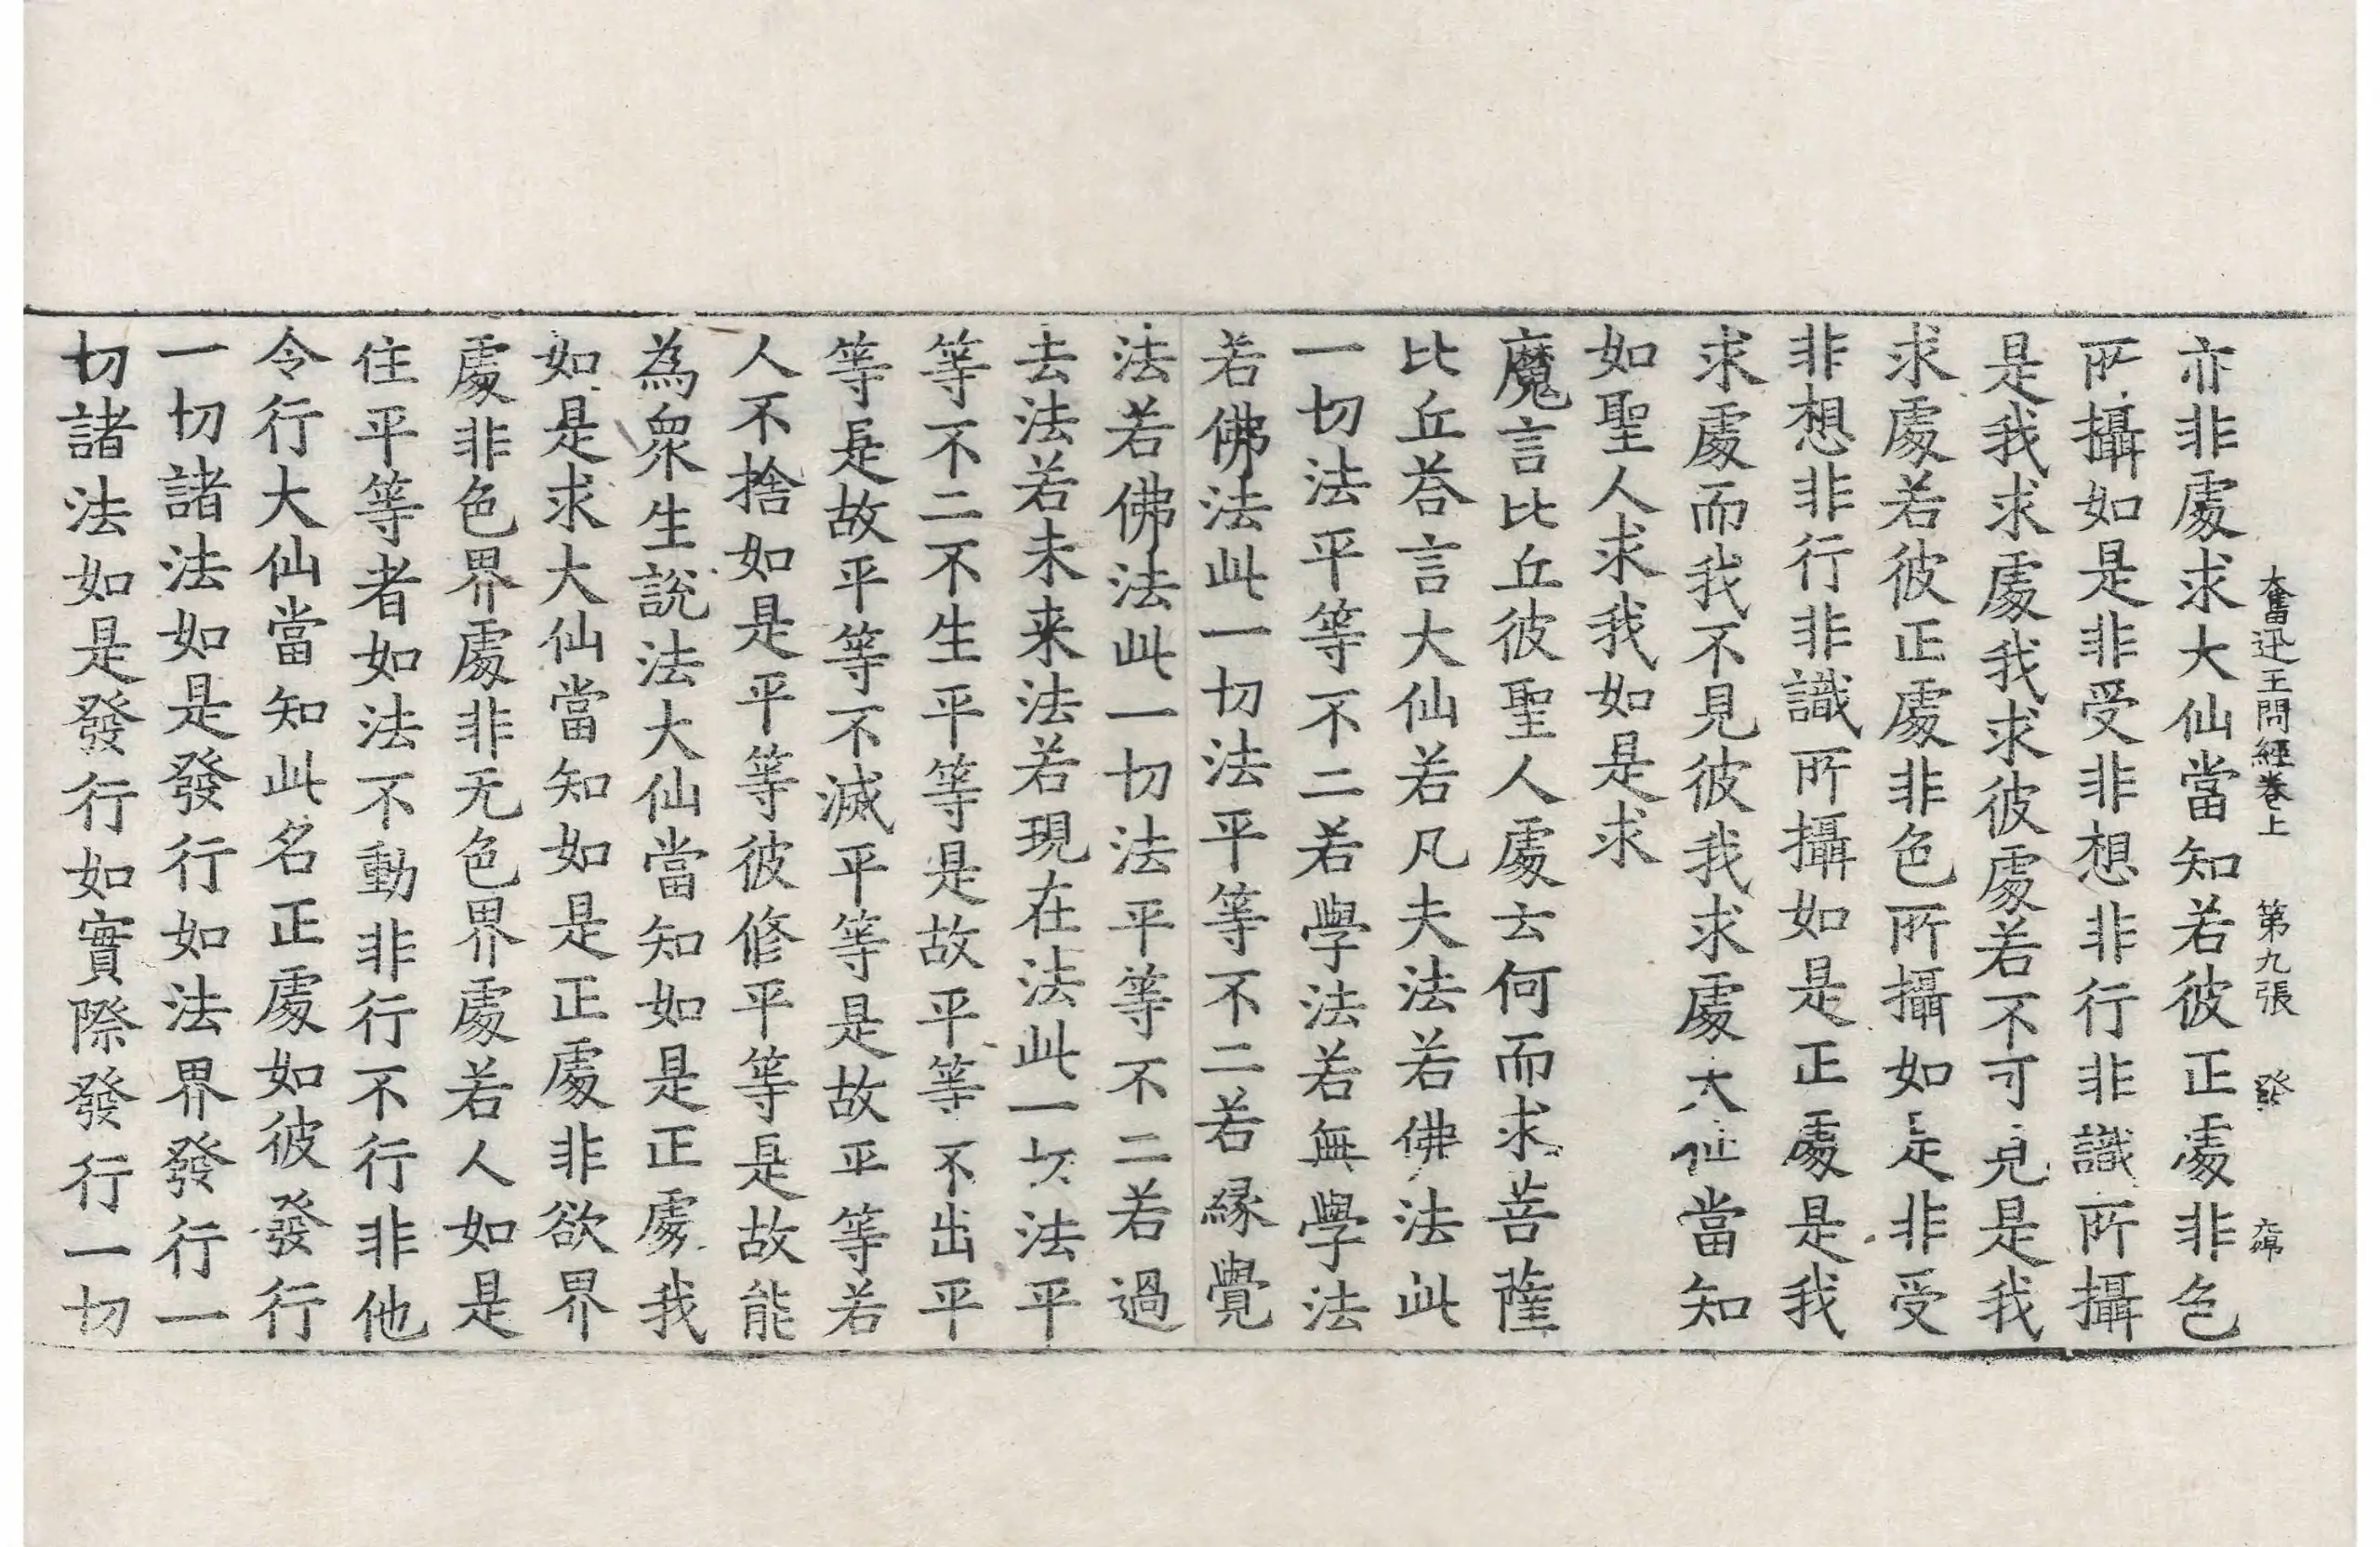 奮迅王問經卷上　第九張　發
亦非處求大仙當知若彼正處非色
所攝如是非受非想非行非識所攝
是我求處我求彼處若不可見是我
求處若彼正處非色所攝如是非受
非想非行非識所攝如是正處是我
求處而我不見彼我求處大仙當知
如聖人求我如是求
魔言比丘彼聖人處云何而求菩薩
比丘荅言大仙若凡夫法若佛法此
一切法平等不二若學法若無學法
若佛法此一切法平等不二若緣覺
法若佛法此一切法平等不二若過
去法若未来法若現在法此一切法平
等不二不生平等是故平等不出平
等是故平等不滅平等是故平等若
人不捨如是平等彼修平等是故能
為衆生說法大仙當知如是正處我
如是求大仙當知如是正處非欲界
處非色界處非无色界處若人如是
住平等者如法不動非行不行非他
令行大仙當知此名正處如彼發行
一切諸法如是發行如法界發行一
切諸法如是發行如實際發行一切